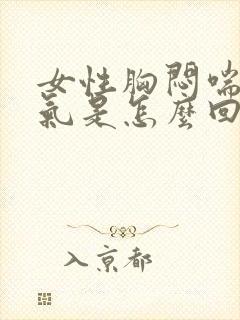 女性胸悶喘
氣是怎麼回
入京都